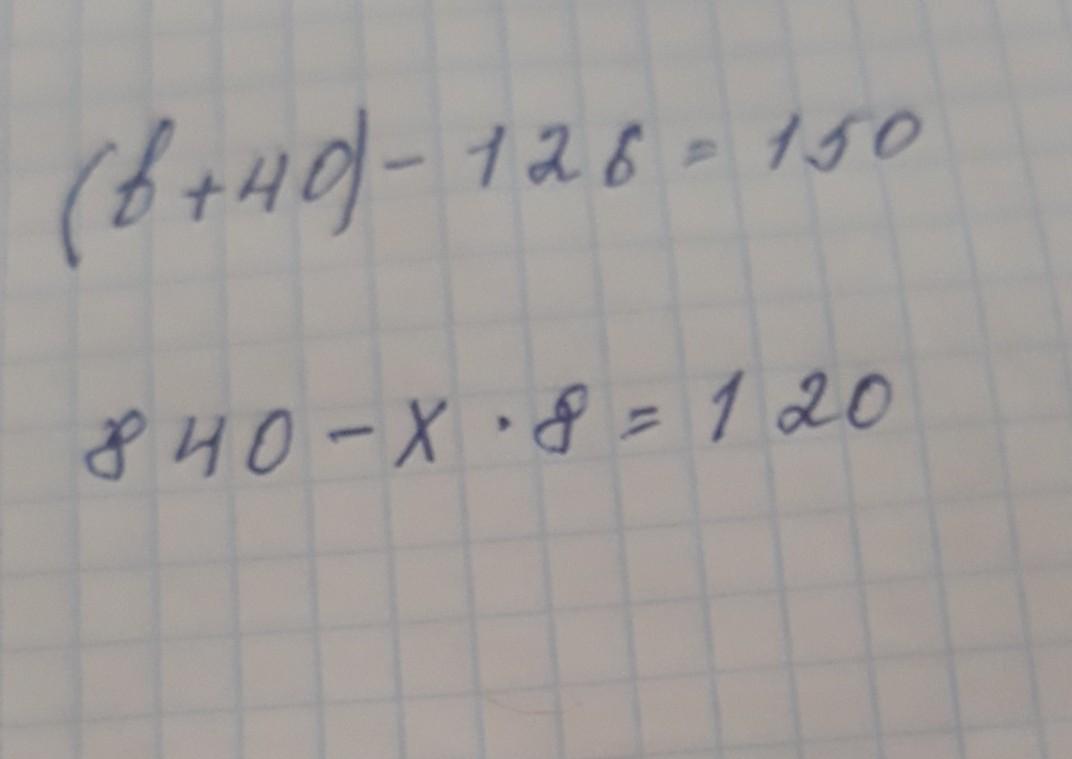 (b+40)-126=150
840-x·8=120